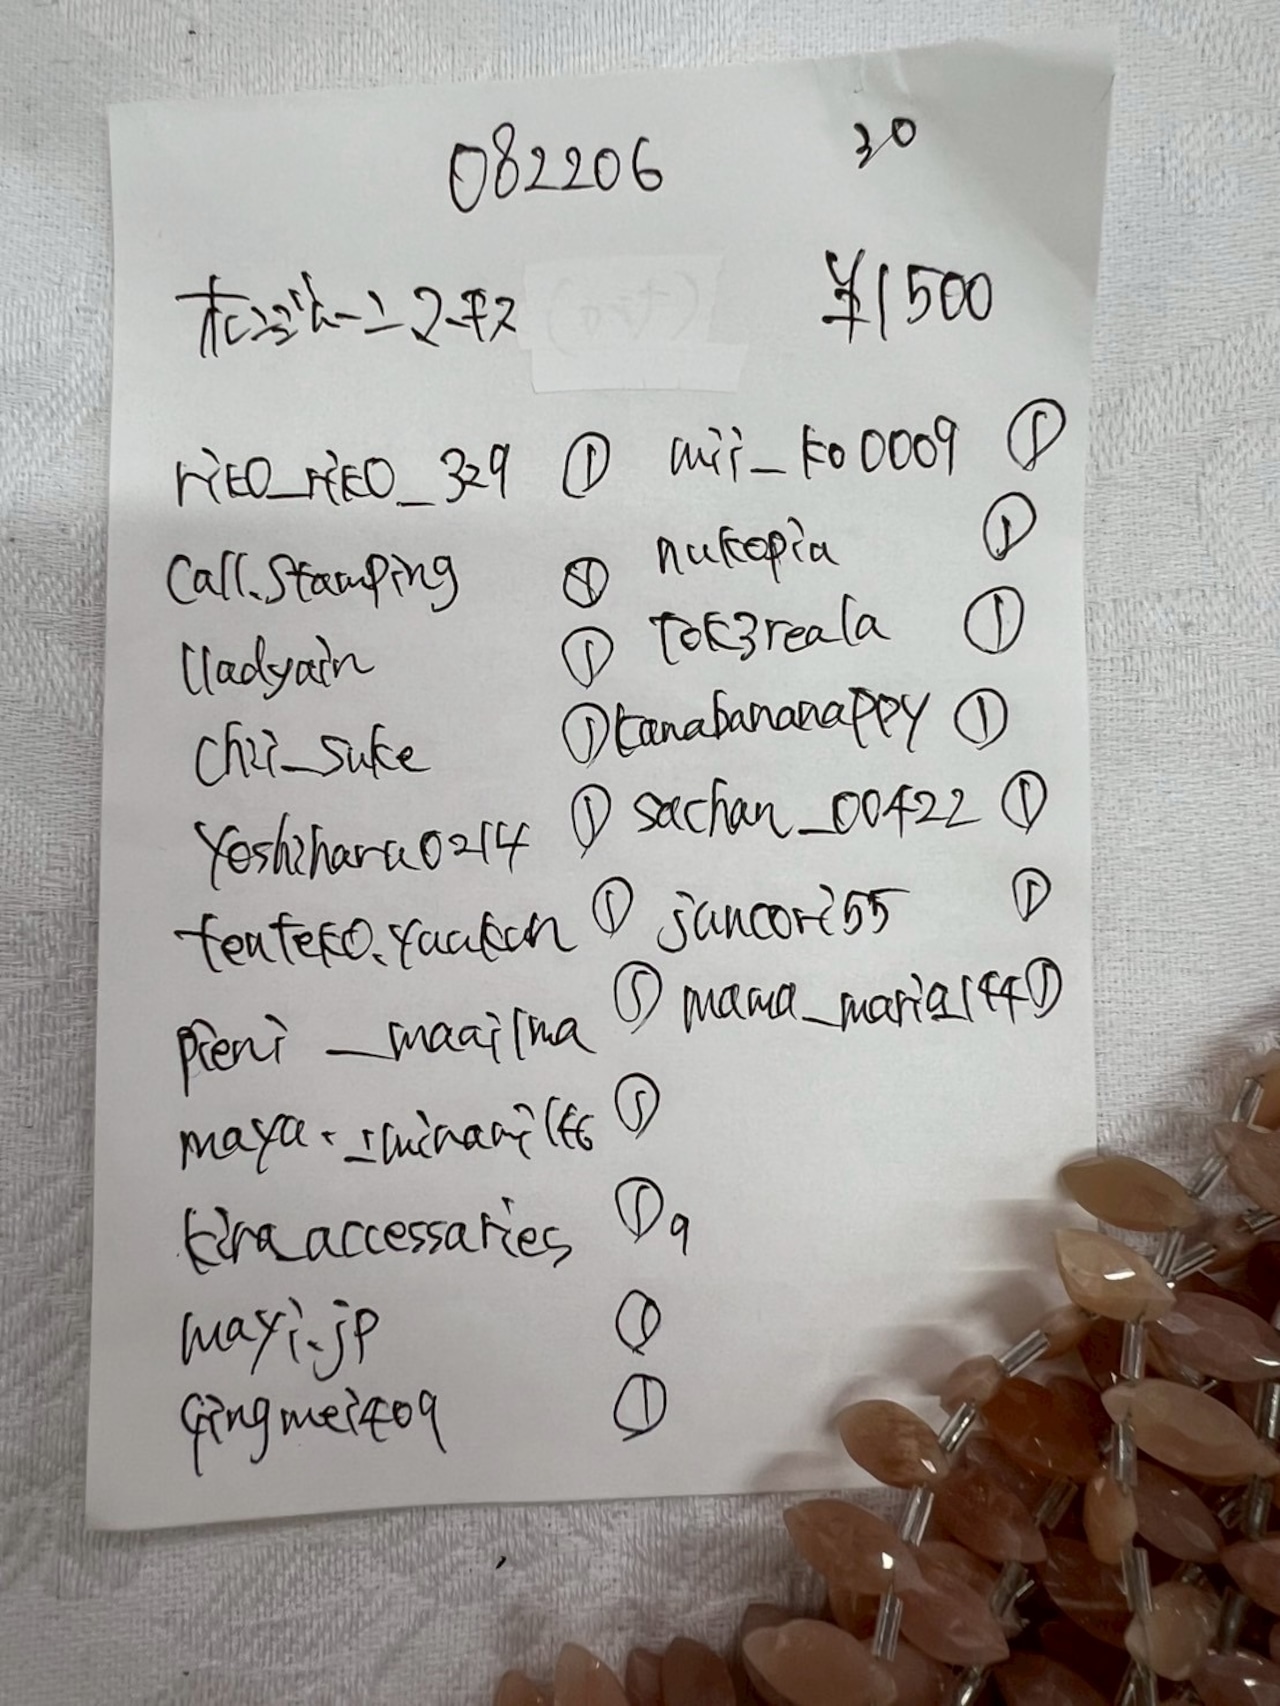 082206
30
¥1500
riko_riko_329 ①
call.stamping ④
lladyain ①
chii_suke ①
yoshihara0214 ①
tenteko.yaakan ①
pieni_maailma ①
maya._minami ①
kira_accessaries ① 9
mayi.jp ①
qingmei409 ①
mii_ko0009 ①
nukopia ①
tok3reala ①
kanabananappy ①
sachan_00422 ①
juncori55 ①
mama_maria144 ①